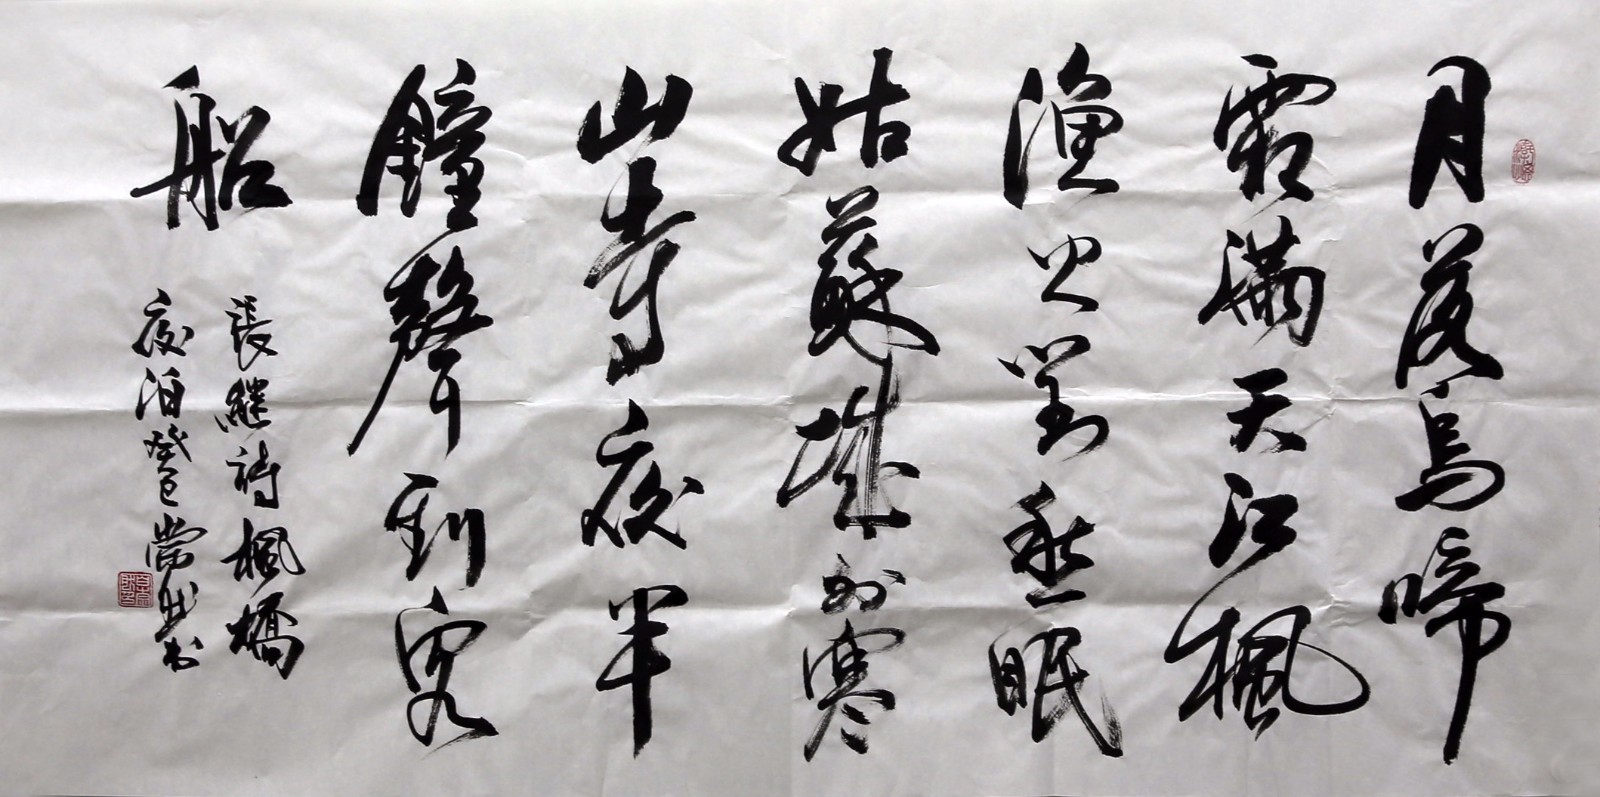 月落烏啼
霜滿天江楓
漁火對愁眠
姑蘇城外寒
山寺夜半
鐘聲到客
船
張繼詩楓橋
夜泊癸巳
書